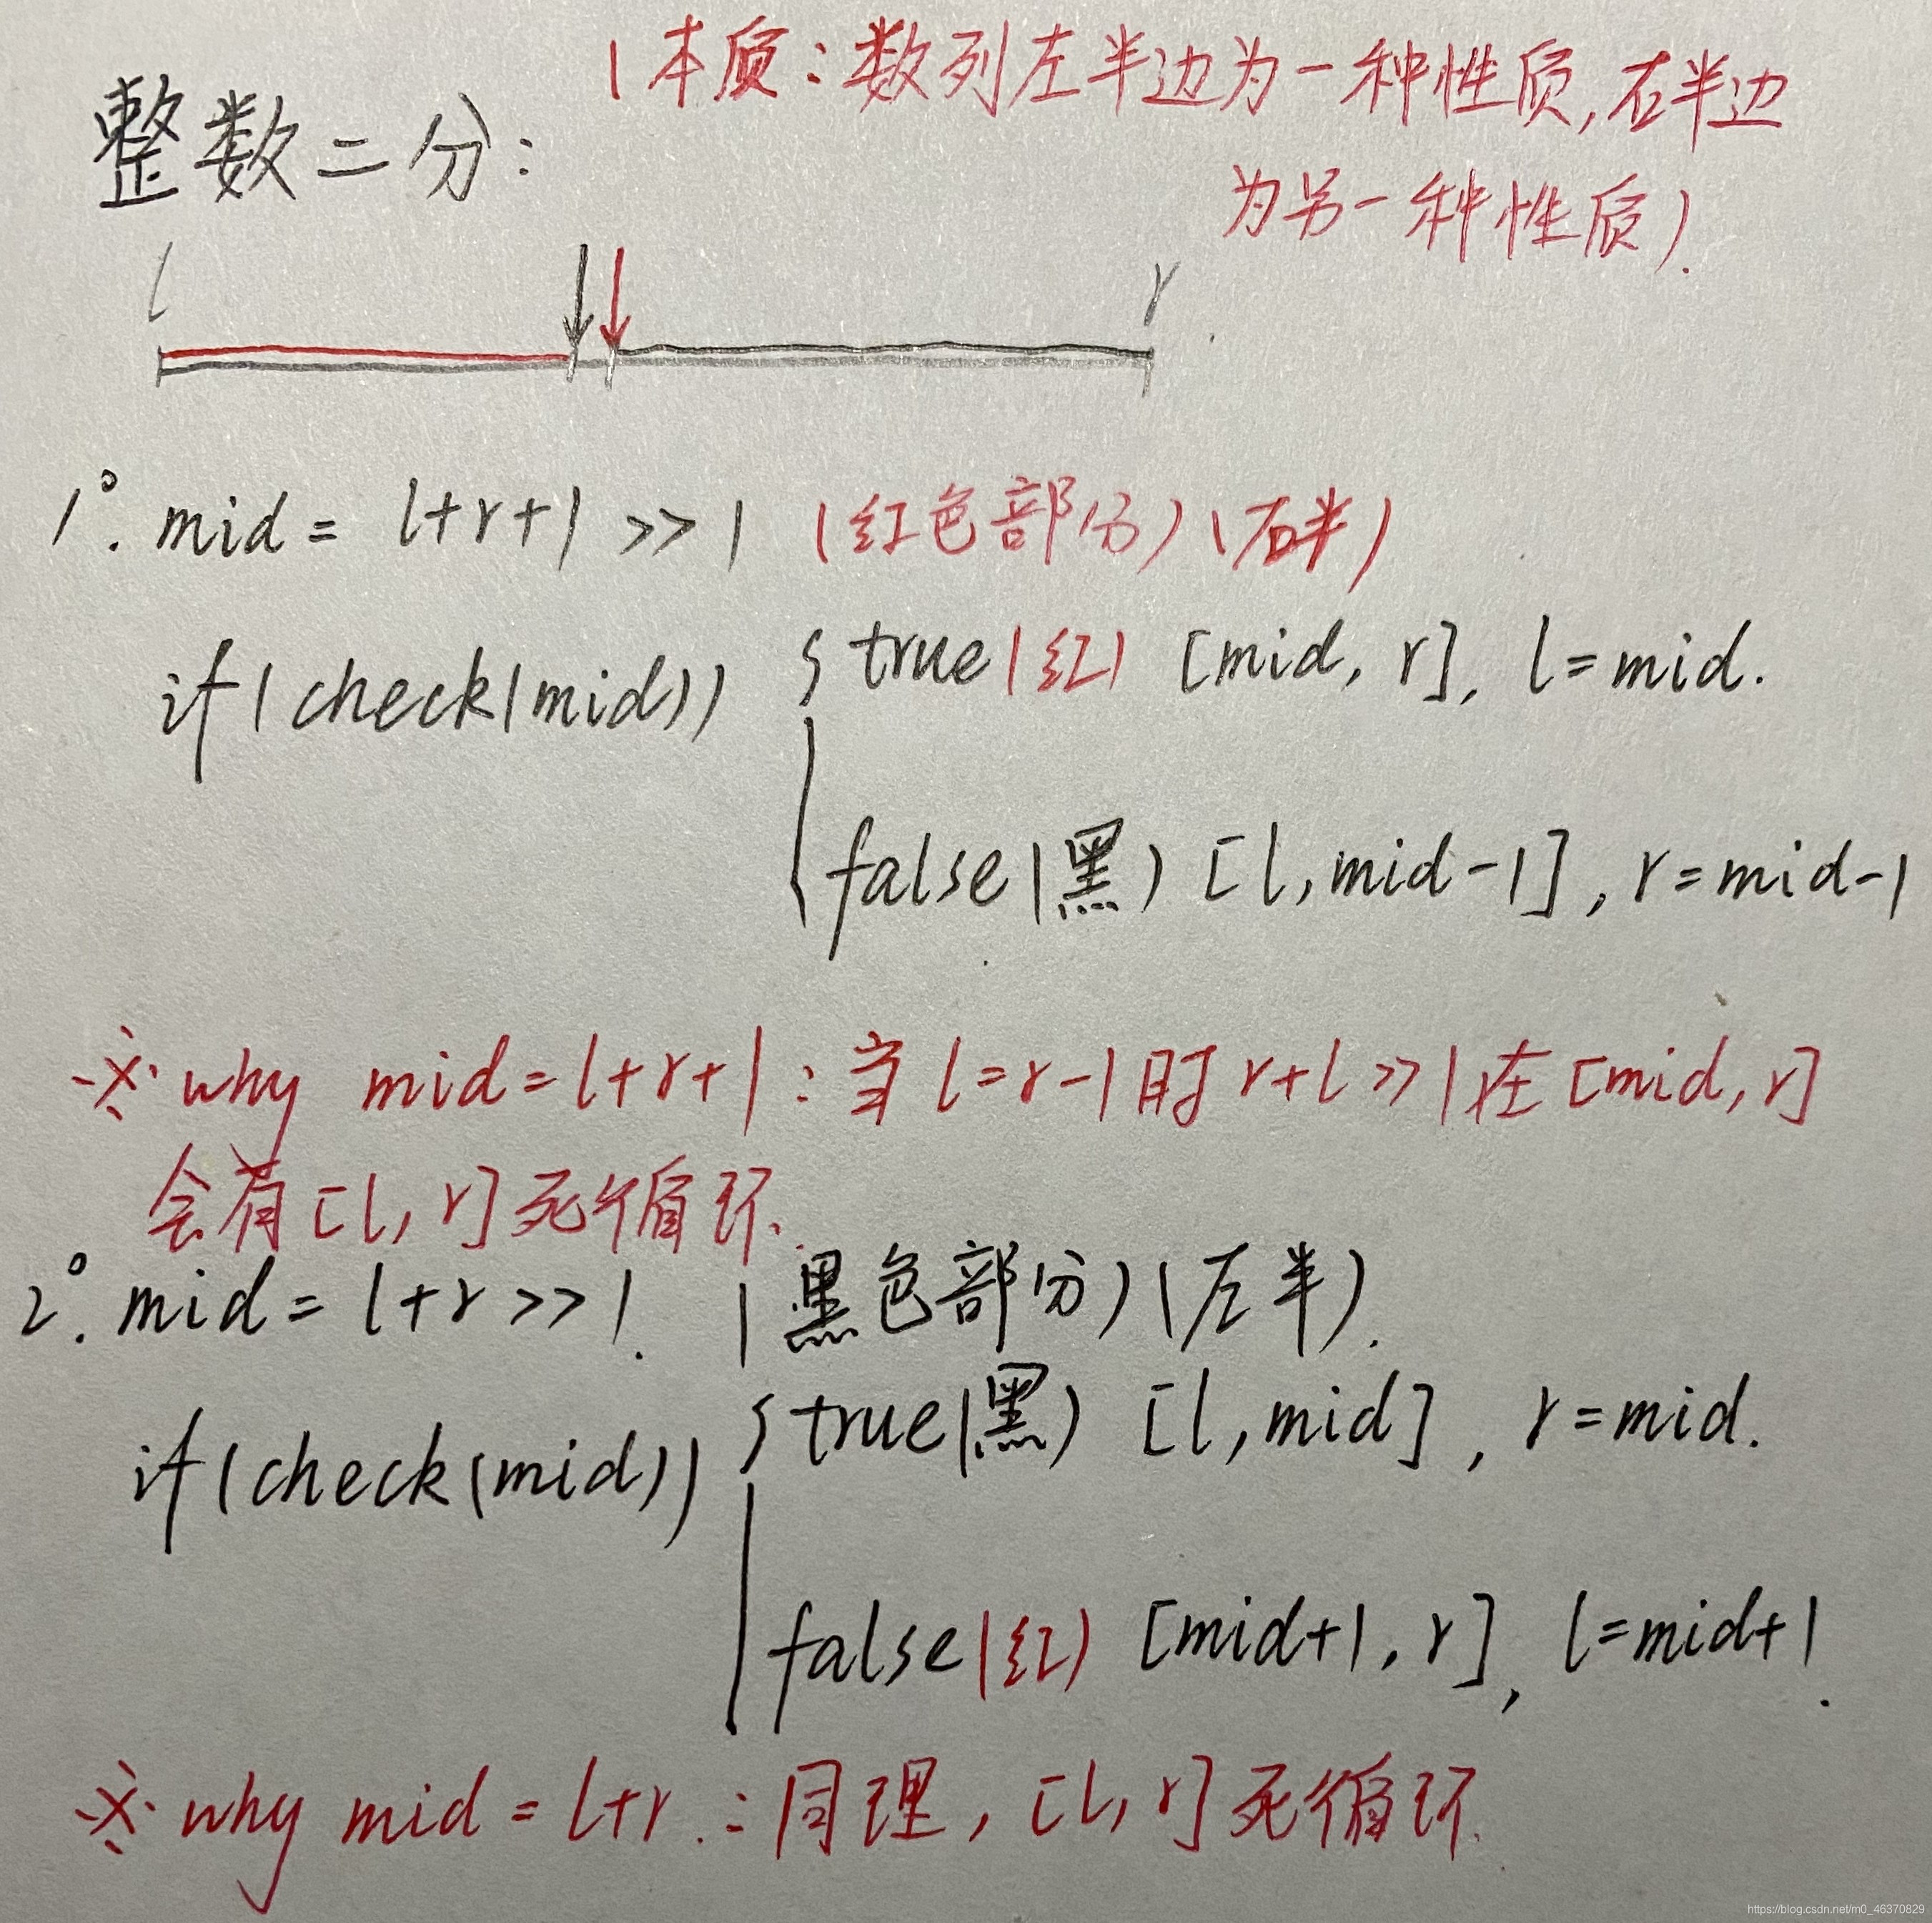 (本质:数列左半边为一种性质,右半边
为另一种性质).
整数二分:
l r
1°. mid = l+r+1 >> 1 (红色部分)(右半)
if(check(mid)) { true(红) [mid, r], l=mid.
false(黑) [l, mid-1], r=mid-1
※ why mid=l+r+1 : 当 l=r-1时 r+l>>1在[mid, r]
会有[l, r]死循环.
2°. mid = l+r >> 1. (黑色部分)(左半).
if(check(mid)) { true(黑) [l, mid], r=mid.
false(红) [mid+1, r], l=mid+1.
※ why mid = l+r .: 同理, [l, r]死循环.
https://blog.csdn.net/m0_46370829